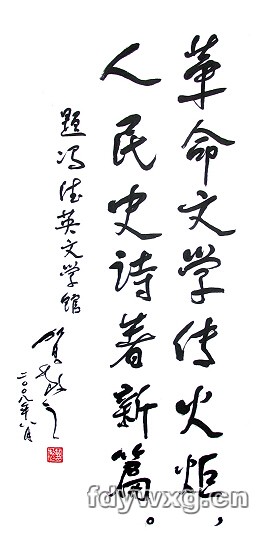 革命文学传火炬，
人民史诗着新篇。
题冯德英文学馆
贺敬之
二〇〇九年八月
fdywxg.cn